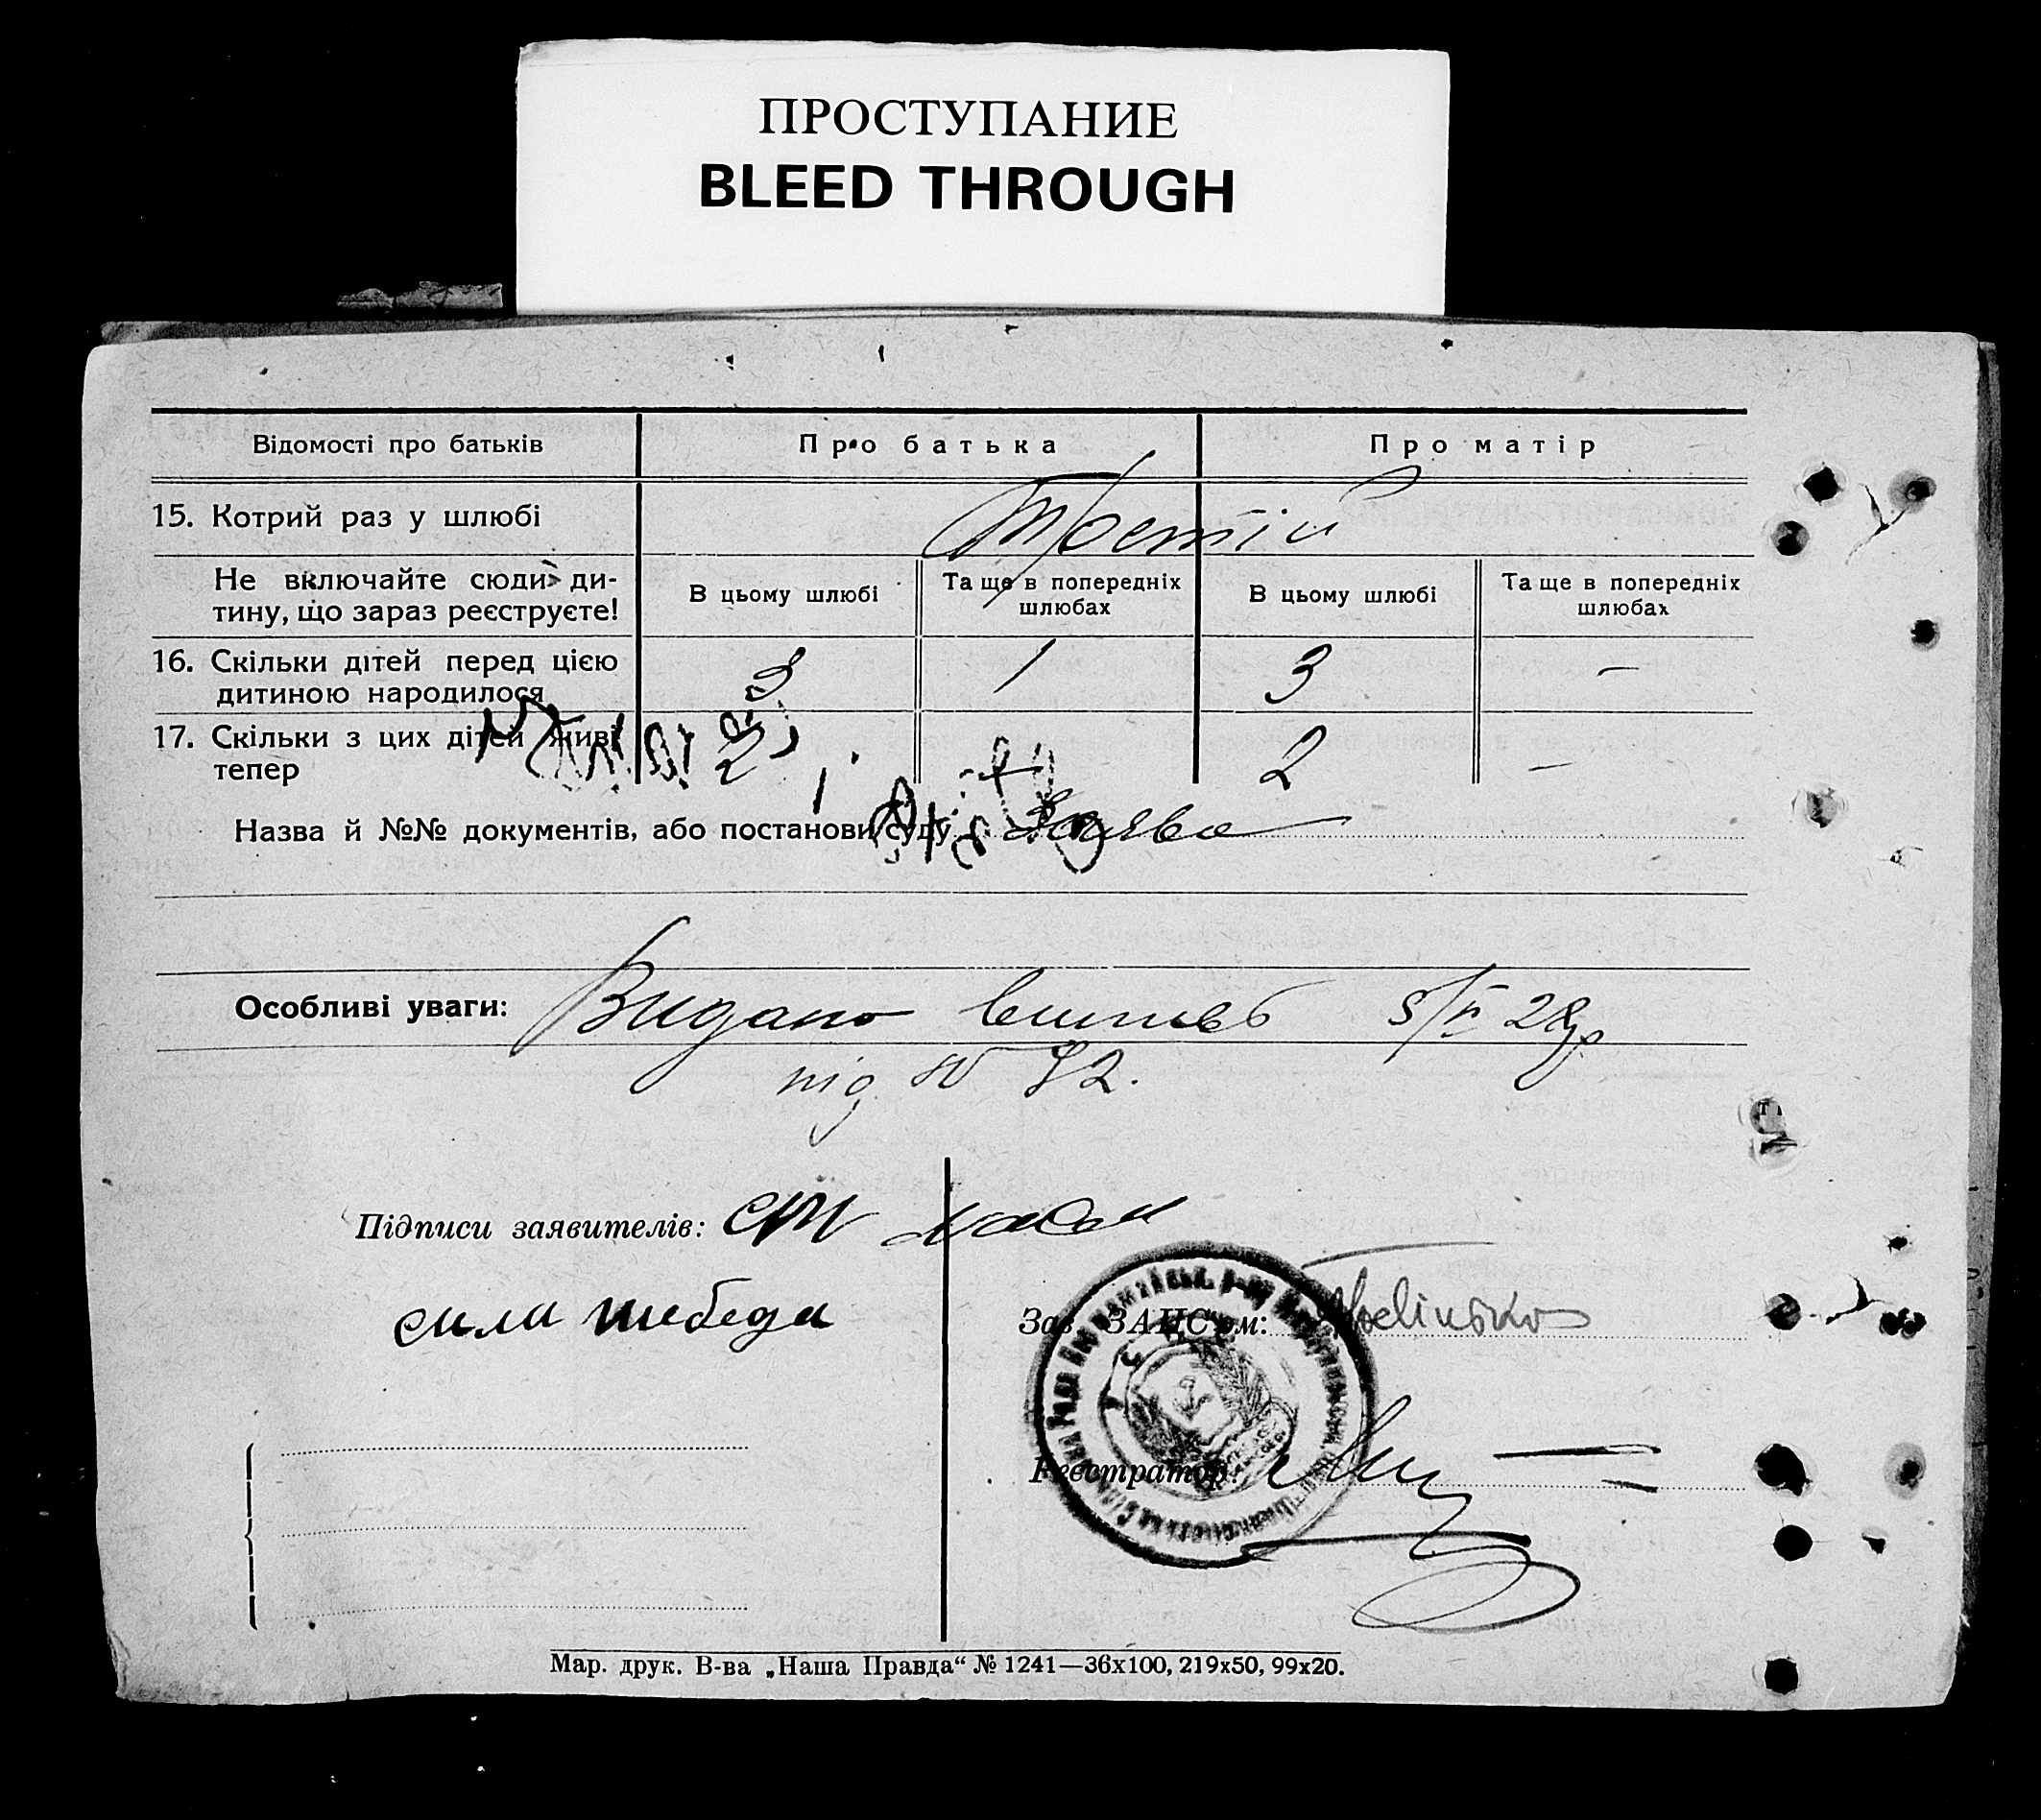 ПРОСТУПАНИЕ
BLEED THROUGH
Відомості про батьків
Про батька
Про матір
15. Котрий раз у шлюбі
Третій
Не включайте сюди ди-
тину, що зараз реєструєте!
В цьому шлюбі
Та ще в попередніх
шлюбах
В цьому шлюбі
Та ще в попередніх
шлюбах
16. Скільки дітей перед цією
дитиною народилося
3
1
3
—
17. Скільки з цих дітей живі
тепер
2
1
2
—
Назва й №№ документів, або постанови суду
Заява
Особливі уваги:
Видано 5/VI 28р
під № 72.
Підписи заявителів:
Зав. ЗАГС'ом:
Реєстратор:
Мар. друк. В-ва „Наша Правда“ № 1241—36х100, 219х50, 99х20.